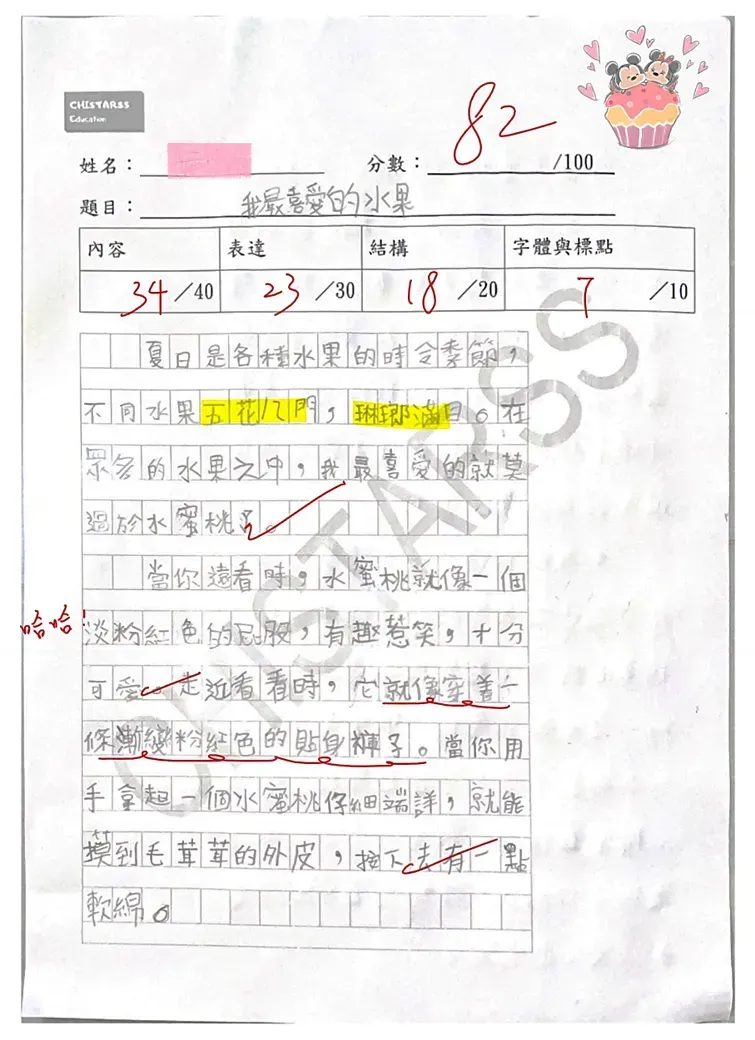 CHISTARSS
Education
82
姓名：
分數： /100
題目： 我最喜愛的水果
內容 表達 結構 字體與標點
34 /40 23 /30 18 /20 7 /10
夏日是各種水果的時令季節，
不同水果五花八門，琳瑯滿目。在
眾多的水果之中，我最喜愛的就莫
過於水蜜桃了。
當你遠看時，水蜜桃就像一個
哈哈！
淡粉紅色的屁股，有趣惹笑，十分
可愛。走近看看時，它就像穿着一
條漸變粉紅色的貼身褲子。當你用
手拿起一個水蜜桃仔細端詳，就能
摸到毛茸茸的外皮，按下去有一點
軟綿。
CHISTARSS